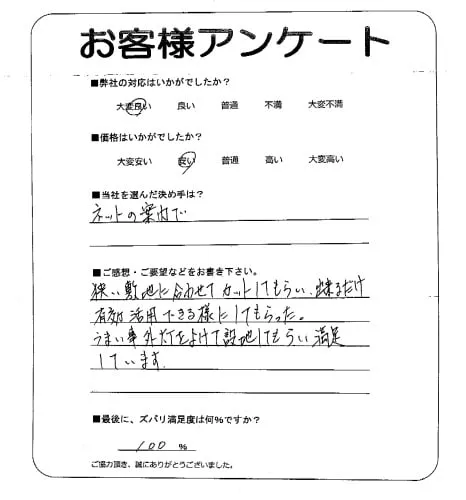 お客様アンケート
■弊社の対応はいかがでしたか？
大変良い 良い 普通 不満 大変不満
■価格はいかがでしたか？
大変安い 安い 普通 高い 大変高い
■当社を選んだ決め手は？
ネットの案内で
■ご感想・ご要望などをお書き下さい。
狭い敷地に合わせてカットしてもらい、出来るだけ
有効活用できる様にしてもらった。
うまい事外灯をよけて設地してもらい満足
しています
■最後に、ズバリ満足度は何%ですか？
100 %
ご協力頂き、誠にありがとうございました。